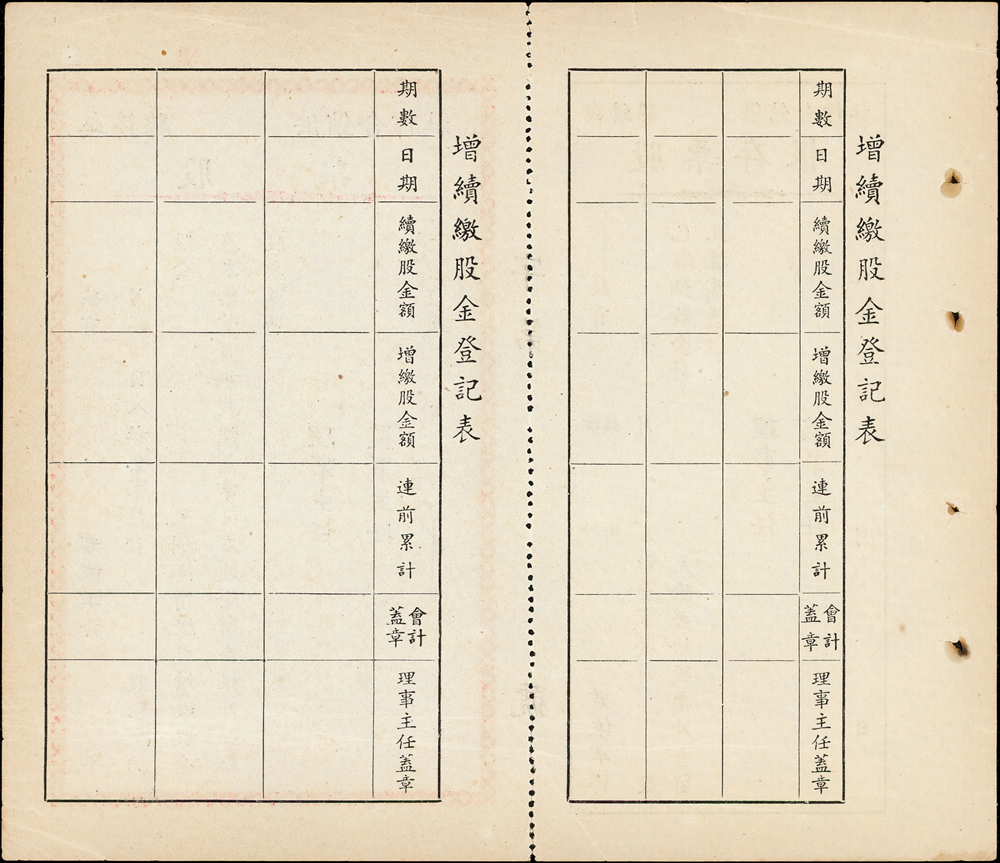 增續繳股金登記表
期數
日期
續繳股金額
增繳股金額
連前累計
會計
蓋章
理事主任蓋章
增續繳股金登記表
期數
日期
續繳股金額
增繳股金額
連前累計
會計
蓋章
理事主任蓋章